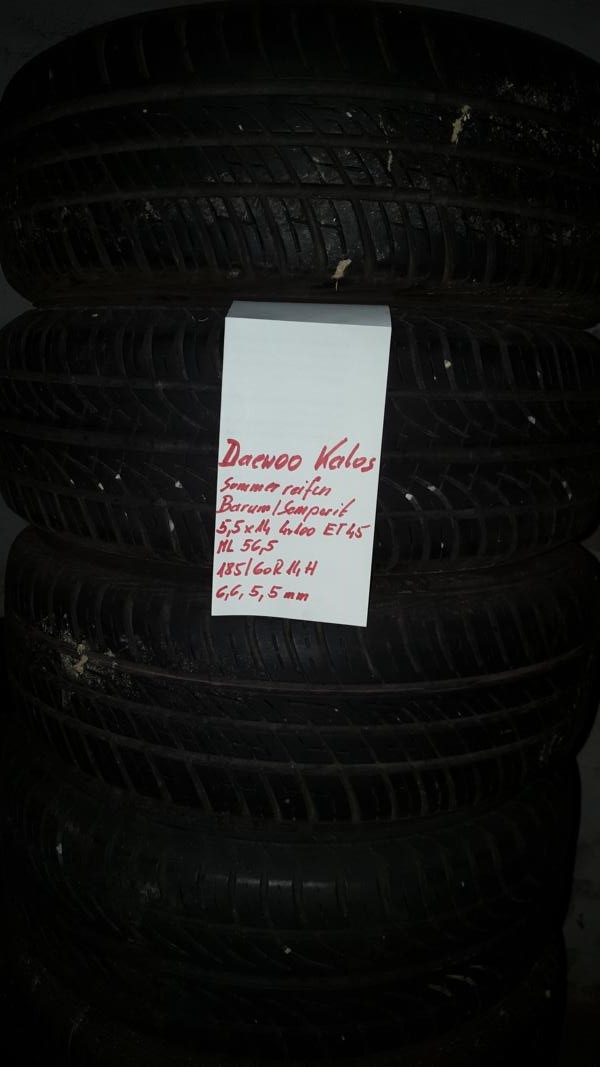 Daewoo Kalos
Sommerreifen
Barum/Semperit
5,5x14 4x100 ET45
ML 56,5
185/60R14H
6,6,5,5mm